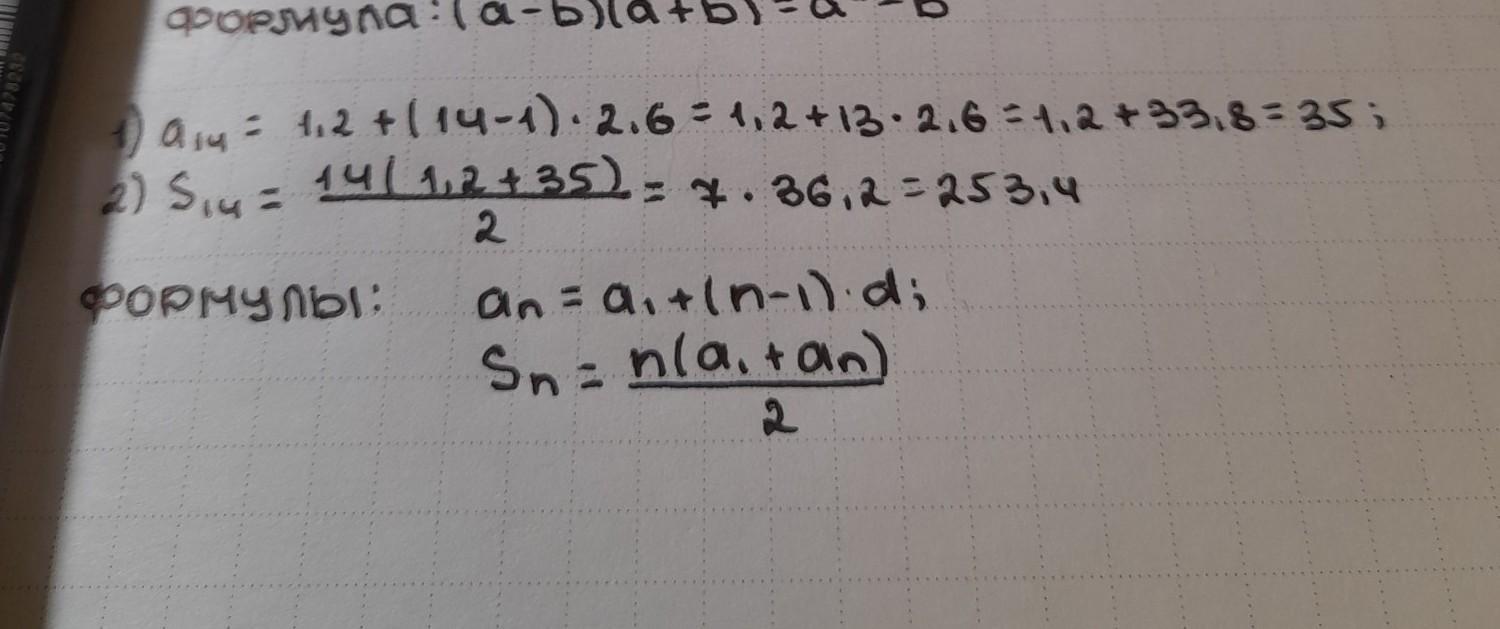 формула: (a-b)(a+b)=a - b
1) a₁₄ = 1,2 + (14-1) · 2,6 = 1,2 + 13 · 2,6 = 1,2 + 33,8 = 35;
2) S₁₄ = 14(1,2+35)/2 = 7 · 36,2 = 253,4
формулы: aₙ = a₁ + (n-1) · d;
Sₙ = n(a₁ + aₙ)/2